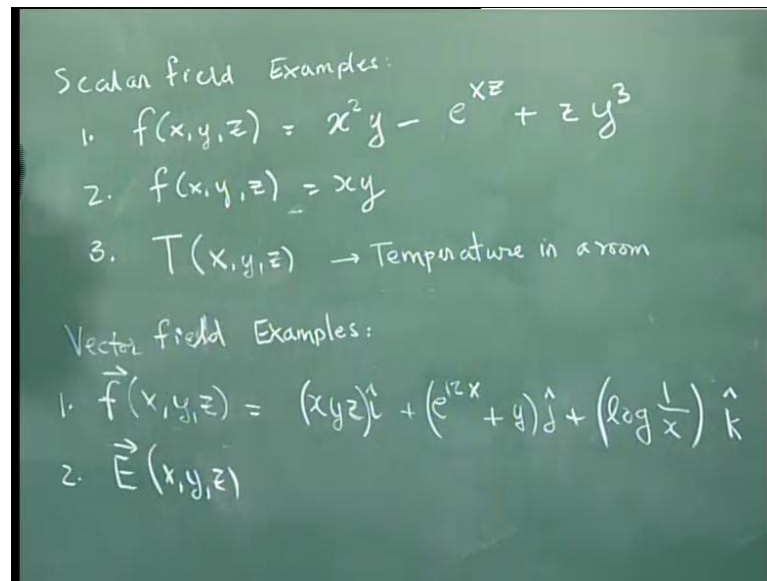 Scalar field Examples:
1. f(x,y,z) = x²y - e^{xz} + zy³
2. f(x,y,z) = xy
3. T(x,y,z) → Temperature in a room
Vector field Examples:
1. \vec{f}(x,y,z) = (xyz)î + (e^{12x} + y)ĵ + (log \frac{1}{x}) k̂
2. \vec{E}(x,y,z)